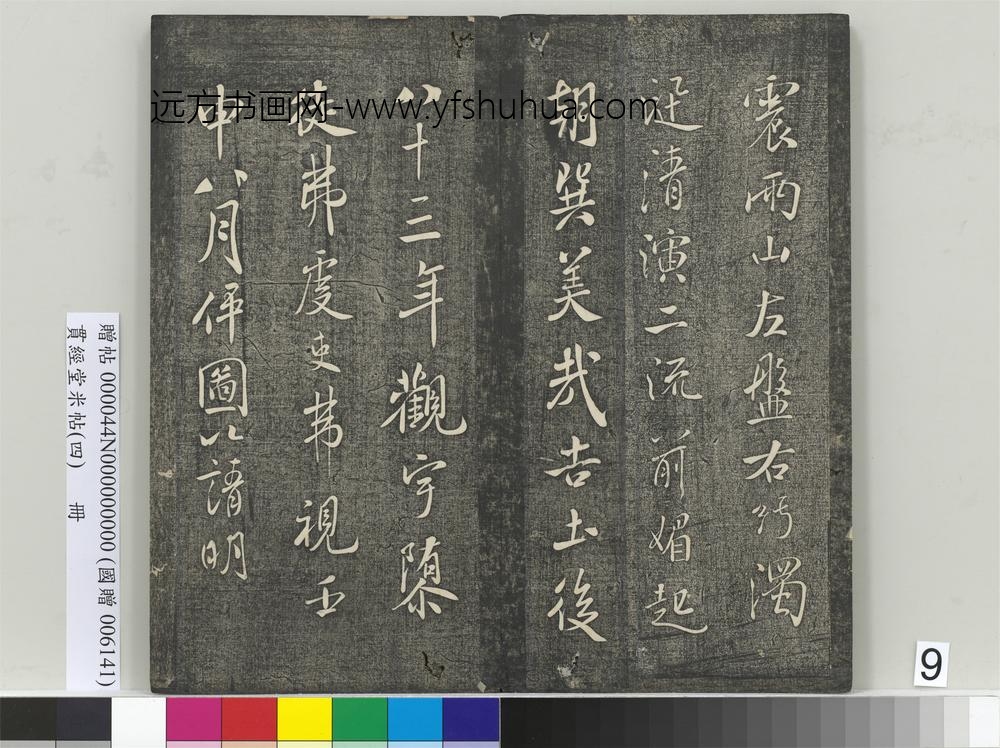 震雨山左盤右紆濁
清演二流前媚起
朝巽美哉吉土後
八十三年觀宇隳
使弗虔吏芾視壬
申八月伻圖以請明
远方书画网-www.yfshuhua.com
贈帖 000044N000000000 (國贈 006141)
貫經堂米帖(四) 冊
9